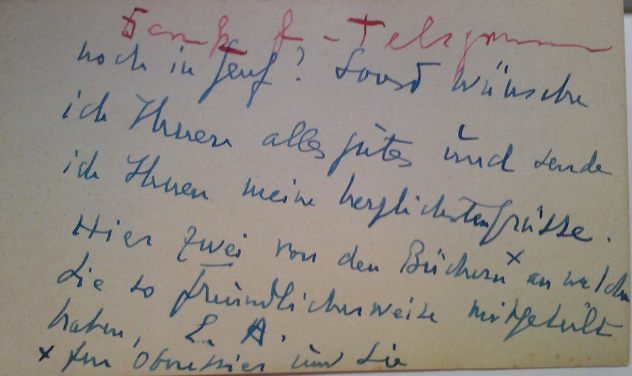 Dank f - Telegramm
noch in Genf? Sonst wünsche
ich Ihnen alles gutes und sende
ich Ihnen meine herzlichsten Grüsse.
Hier zwei von den Büchern x an welchen
Sie so freundlicherweise mitgeteilt
haben, L. A.
x für und Sie